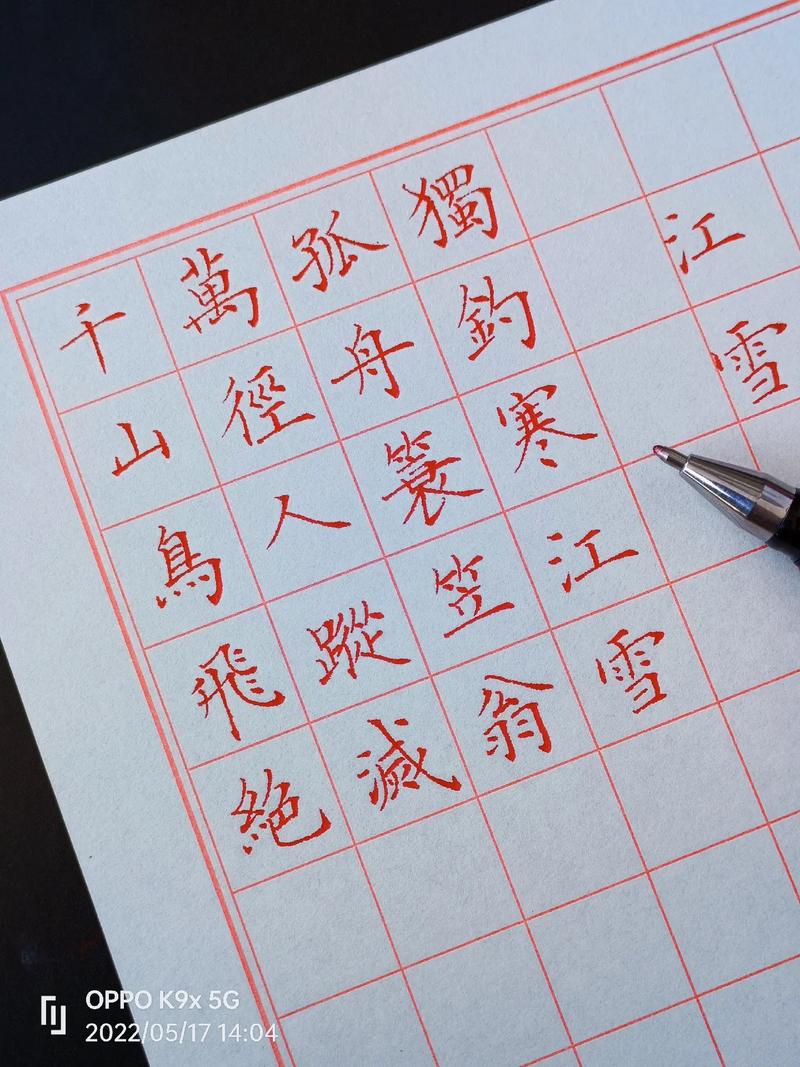 千山鳥飛絶
萬徑人蹤滅
孤舟簑笠翁
獨釣寒江雪
江雪
OPPO K9x 5G
2022/05/17 14:04